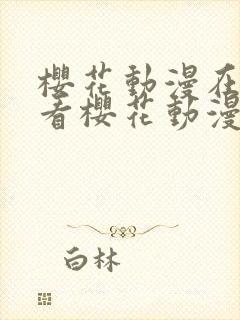 櫻花動漫在
看櫻花動漫
白林